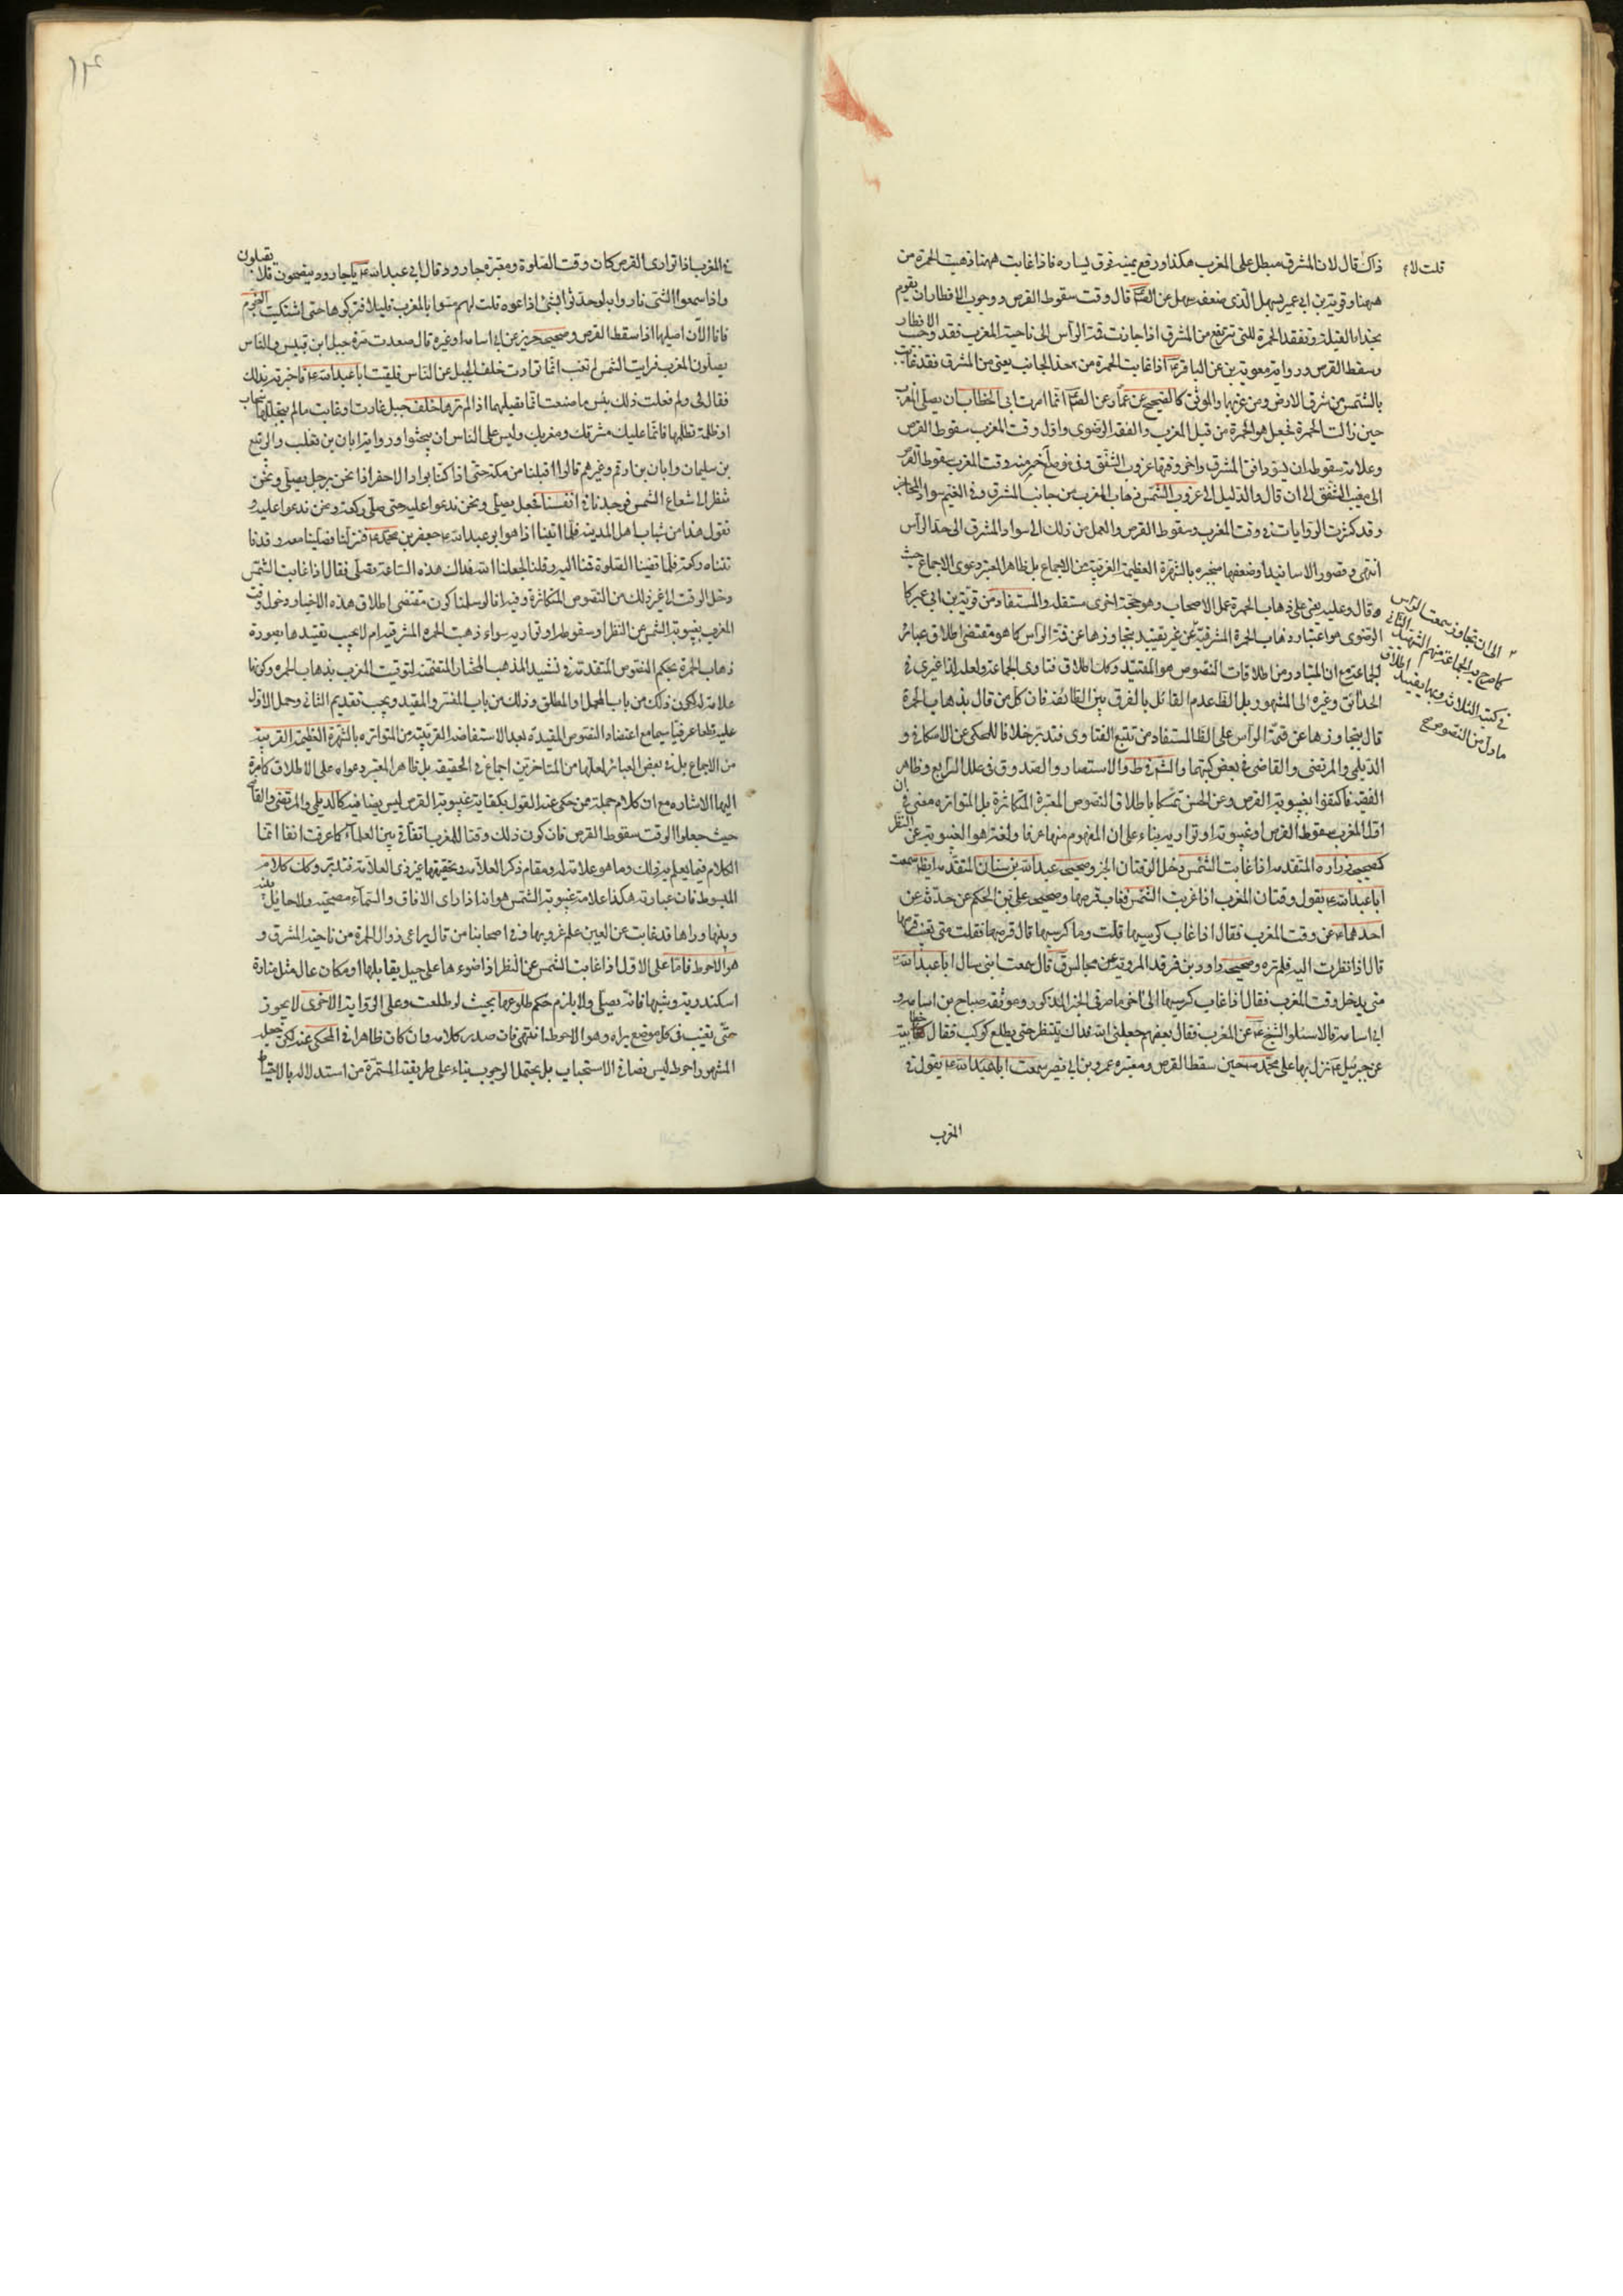 ذاك قال لان المشرق مطل على المغرب هكذا ورفع يمينه فوق يساره فاذا غابت ههنا ذهبت الحمرة من
قلت لا
ههنا وقوية بن ابي عمير قال وقت سقوط القرص ووجوب الافطار ان يقوم
بحذاء القبلة وتفقد الحمرة التي ترتفع من المشرق اذا جازت قمة الرأس الى ناحية المغرب فقد وجب الافطار
وسقط القرص ورواية معوية بن عن الباقر اذا غابت الحمرة من هذا الجانب يعني من المشرق فقد غابت
الشمس من شرق الارض ومن غربها والموثق كالصحيح عن عمار عن انما امرت ابا الخطاب ان يصلي المغرب
حين زالت الحمرة فجعل هو الحمرة من قبل المغرب والفقه الرضوي واول وقت المغرب سقوط القرص
وعلامة سقوطه ان يسود افق المشرق واخر وقتها غروب الشفق وفي موضع اخر منه وقت المغرب سقوط القرص
الى مغيب الشفق الى ان قال والدليل على غروب الشمس ذهاب الحمرة من جانب المشرق وفي الغيم سواد المحاجر
وقد كثرت الروايات في وقت المغرب وسقوط القرص والعمل من ذلك على سواد المشرق الى حد الرأس
انتهى وقصور الاسانيد او ضعفها منجبر بالشهرة العظيمة القريبة من الاجماع بل ظاهر المعتبر دعوى الاجماع حيث
قال وعليه يعني على ذهاب الحمرة عمل الاصحاب وهو حجة اخرى مستقلة والمستفاد من قوية بن ابي عمير كا
الرضوي هو اعتبار ذهاب الحمرة المشرقية من غير تقييد بتجاوزها عن قمة الرأس كما هو مقتضى اطلاق عبائر
الى ان تجاوز سمت الرأس
كما صرح به الجماعة منهم الشهيد الثاني
في كتبه الثلاثة وبها يقيد اطلاق
ما دل من النصوص
الجماعة مع ان المتبادر من اطلاقات النصوص هو المقيد وكذا اطلاق فتاوى الجماعة ولعله لذا عزي في
الحدائق وغيره الى المشهور بل الظ عدم القائل بالفرق بين الطائفة فان كل من قال بذهاب الحمرة
قال بتجاوزها عن قمة الرأس على الظ المستفاد من تتبع الفتاوى فتدبر خلافا للمحكي عن الاسكافي و
الديلمي والمرتضى والقاضي في بعض كتبهما والشيخ في ط والاستبصار والصدوق في علل الشرايع وظاهر
الفقيه فاكتفوا بغيبوبة القرص وعن الحسن تمسكا باطلاق النصوص المعتبرة المتكاثرة بل المتواترة معنى في ان
اول المغرب سقوط القرص او غيبوبته او تواريه بناء على ان المفهوم منها عرفا ولغة هو الغيبوبة عن النظر
كصحيحة زرارة المتقدمة اذا غابت الشمس دخل الوقتان الخ وصحيحة عبد الله بن سنان المتقدمة ايضا سمعت
ابا عبد الله ع يقول وقت المغرب اذا غربت الشمس فغاب قرصها وصحيحة علي بن الحكم عن حدثه عن
احدهما ع عن وقت المغرب فقال اذا غاب كرسيها قلت وما كرسيها قال قرصها فقلت متى يغيب قرصها
قال اذا نظرت اليه فلم تره وصحيحة داود بن فرقد المروية عن مجالس ق قال سمعت ابي سال ابا عبد الله ع
متى يدخل وقت المغرب فقال اذا غاب كرسيها الى اخر ما مر في الخبر المذكور وموثقة صباح بن سيابة و
ابي اسامة قالا سئلوا الشيخ ع عن المغرب فقال بعضهم جعلني الله فداك ننتظر حتى يطلع كوكب فقال خطابية
ان جبرئيل ع نزل بها على محمد ص حين سقط القرص ومعتبرة عمرو بن ابي نصر سمعت ابا عبد الله ع يقول في
المغرب
في المغرب اذا توارى القرص كان وقت الصلوة ومعتبرة جارود قال لي ابو عبد الله ع يا جارود ينصحون فلا يقبلون
واذا سمعوا الشئ نادوا به او حدثوا بشئ اذاعوه قلت لهم مسوا بالمغرب قليلا فتركوها حتى اشتبكت النجوم
فانا الان اصليها اذا سقط القرص وصحيحة حريز عن ابي اسامة او غيره قال صعدت مرة جبل ابي قبيس والناس
يصلون المغرب فرايت الشمس لم تغب انما توارت خلف الجبل عن الناس فلقيت ابا عبد الله ع فاخبرته بذلك
فقال لي ولم فعلت ذلك بئس ما صنعت انما تصليها اذا لم ترها خلف جبل غابت او غارت ما لم يتجللها سحاب
او ظلمة تظلها فانما عليك مشرقك ومغربك وليس على الناس ان يبحثوا ورواية ابان بن تغلب والربيع
بن سليمان وابان بن ارقم وغيرهم قالوا اقبلنا من مكة حتى اذا كنا بوادي الاخضر اذا نحن برجل يصلي ونحن
ننظر الى شعاع الشمس فوجدنا في انفسنا فجعل يصلي ونحن ندعو عليه حتى صلى ركعة ونحن ندعو عليه و
نقول هذا من شباب اهل المدينة فلما اتينا اذا هو ابو عبد الله جعفر بن محمد ع فنزلنا فصلينا معه وقد فا
تتناه ركعة فلما قضينا الصلوة قمنا اليه وقلنا جعلنا الله فداك هذه الساعة تصلي فقال اذا غابت الشمس
دخل الوقت الى غير ذلك من النصوص المتكاثرة وفيه انا لو سلمنا كون مقتضى اطلاق هذه الاخبار دخول وقت
المغرب بغيبوبة الشمس عن النظر او سقوطه او تواريه سواء ذهبت الحمرة المشرقية ام لا يجب تقييدها بصورة
ذهاب الحمرة بحكم النصوص المتقدمة في تشييد المذهب المختار المتضمنة لتوقيت المغرب بذهاب الحمرة وكونها
علامة له لكون ذلك من باب المجمل او المطلق وذلك من باب المفسر والمقيد ويجب تقديم الثاني وحمل الاول
عليه قطعا عرفيا سيما مع اعتضاد النصوص المقيدة بعد الاستفاضة القريبة من المتواترة بالشهرة العظيمة القريبة
من الاجماع بل في بعض العبائر لعلها من المتاخرين اجماع في الحقيقة بل ظاهر المعتبر دعواه على الاطلاق كما مرة
اليها الاشارة مع ان كلام جملة ممن حكي عنه القول بكفاية غيبوبة القرص ليس نصا فيه كالديلمي والمرتضى والقاضي
حيث جعلوا الوقت سقوط القرص فان كون ذلك وقتا للمغرب اتفاقي بين العلماء كما عرفت انفا انما
الكلام فيما يعلم به ذلك وما هو علامة له ومقام ذكر العلامة وتحقيقها غير ذي العلامة فتدبر وكذا كلام
المبسوط فان عبارته هكذا علامة غيبوبة الشمس هو انه اذا راى الافاق والسماء مصحية ولا حايل بينه
وبينها وراها قد غابت عن العين علم غروبها وفي اصحابنا من قال يراعى زوال الحمرة من ناحية المشرق و
هو الاحوط فاما على الاول اذا غابت الشمس عن النظر اذا ضوءها على جبل يقابلها او مكان عال مثل منارة
اسكندرية وشبهها فانه يصلي ولا يلزم حكم طلوعها بحيث لو طلعت وعلى الرواية الاخرى لا يجوز
حتى تغيب في كل موضع يراه وهو الاحوط انتهى فان صدر كلامه وان كان ظاهرا في المحكي عنه لكن جعله
المشهور احوط ليس نصا في الاستحباب بل يحتمل الوجوب بناء على طريقته المستمرة من استدلاله بالاحتياط